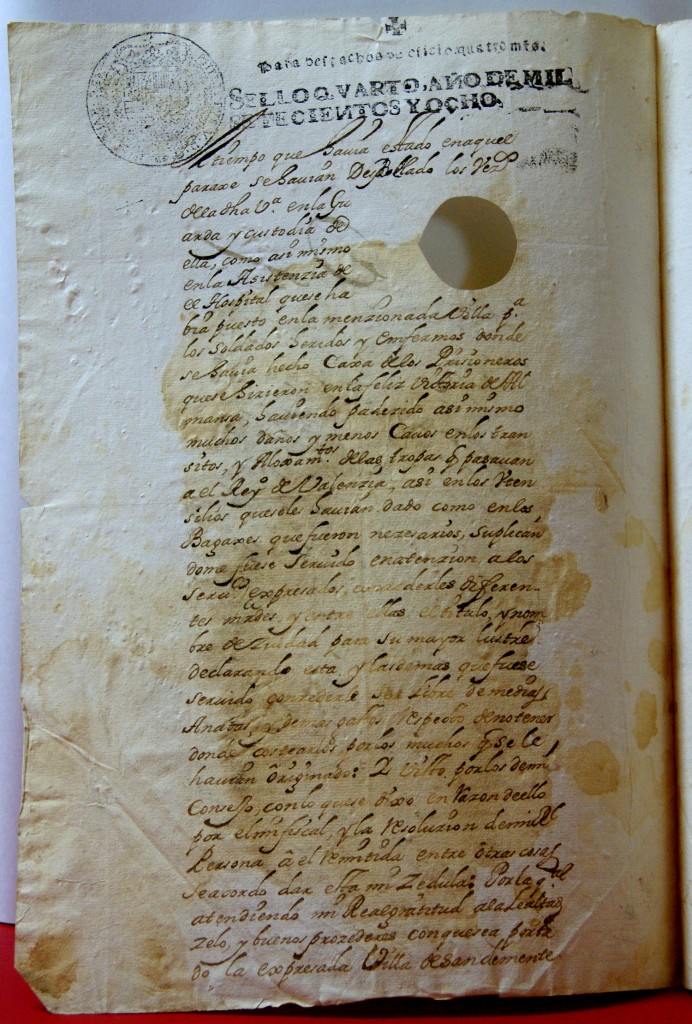 Para despachos de oficio quatro mrs.
SELLO QVARTO, AÑO DE MIL
SETECIENTOS Y OCHO.
tiempo que havia estado en aquel
paraxe se havian Desvellado los Vezº
de la dha Vª en la Gu
arda y custodia de
ella, como asi mismo
en la Asistenzia de
el Hospital que se ha
bia puesto en la menzionada Villa pª
los Soldados heridos y emfermos donde
se havia hecho Caxa de los Prisioneros
que se hizieron en la feliz victoria de Al
mansa, haviendo padezido asi mismo
muchos daños y menos Cavos en los tran
sitos, y Aloxamtos de las tropas q pasavan
a el Reyº de Valenzia, asi en los Uten
silios que se les havian dado como en los
Bagaxes que fueron nezesarios, Suplican
dome fuese Servido en atenzion a los
servº expresados, conzederles diferen-
tes mrdes, y entre ellas el titulo, y nom
bre de Ziudad para su mayor lustre
declarando esta, y las demas que fuese
servido conzederle ser libre de medias
Anatas, y demas gastos respecto de no tener
donde costearlos por los muchos q se le
havian originado: Y visto, por los de mi
Consejo, con lo que se dixo en razon de ello
por el mi fiscal, y la resoluzion de mi Rl
Persona a el remitida entre otras cosas
se acordo dar esta mi Zedula: Por la qual
atendiendo mi Real gratitud a la Lealtad
Zelo, y buenos prozederes con que se a porta
do la expresada Villa de San Clemente